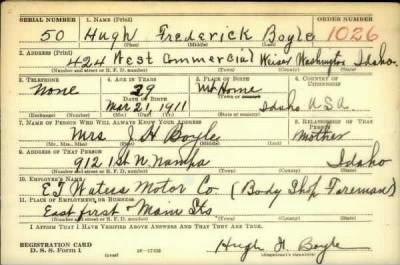 SERIAL NUMBER 1. NAME (Print) ORDER NUMBER
50 Hugh Frederick Boyle 1026
(First) (Middle) (Last)
2. ADDRESS (Print)
424 West Commercial Weiser Washington Idaho.
(Number and street or R. F. D. number) (Town) (County) (State)
3. TELEPHONE 4. AGE IN YEARS 5. PLACE OF BIRTH 6. COUNTRY OF CITIZENSHIP
None 29 Mt Home
DATE OF BIRTH (Town or county)
Mar 21, 1911 Idaho USA
(Exchange) (Number) (Mo.) (Day) (Yr.) (State or country)
7. NAME OF PERSON WHO WILL ALWAYS KNOW YOUR ADDRESS 8. RELATIONSHIP OF THAT PERSON
Mrs J H Boyle Mother
(Mr., Mrs., Miss) (First) (Middle) (Last)
9. ADDRESS OF THAT PERSON
912 1st N. Nampa Idaho
(Number and street or R. F. D. number) (Town) (County) (State)
10. EMPLOYER'S NAME
Motor Co. (Body Shop Foreman)
11. PLACE OF EMPLOYMENT OR BUSINESS
East first & Main Sts
(Number and street or R. F. D. number) (Town) (County) (State)
I AFFIRM THAT I HAVE VERIFIED ABOVE ANSWERS AND THAT THEY ARE TRUE.
REGISTRATION CARD
D. S. S. Form 1 Hugh F. Boyle
(Registrant's signature)